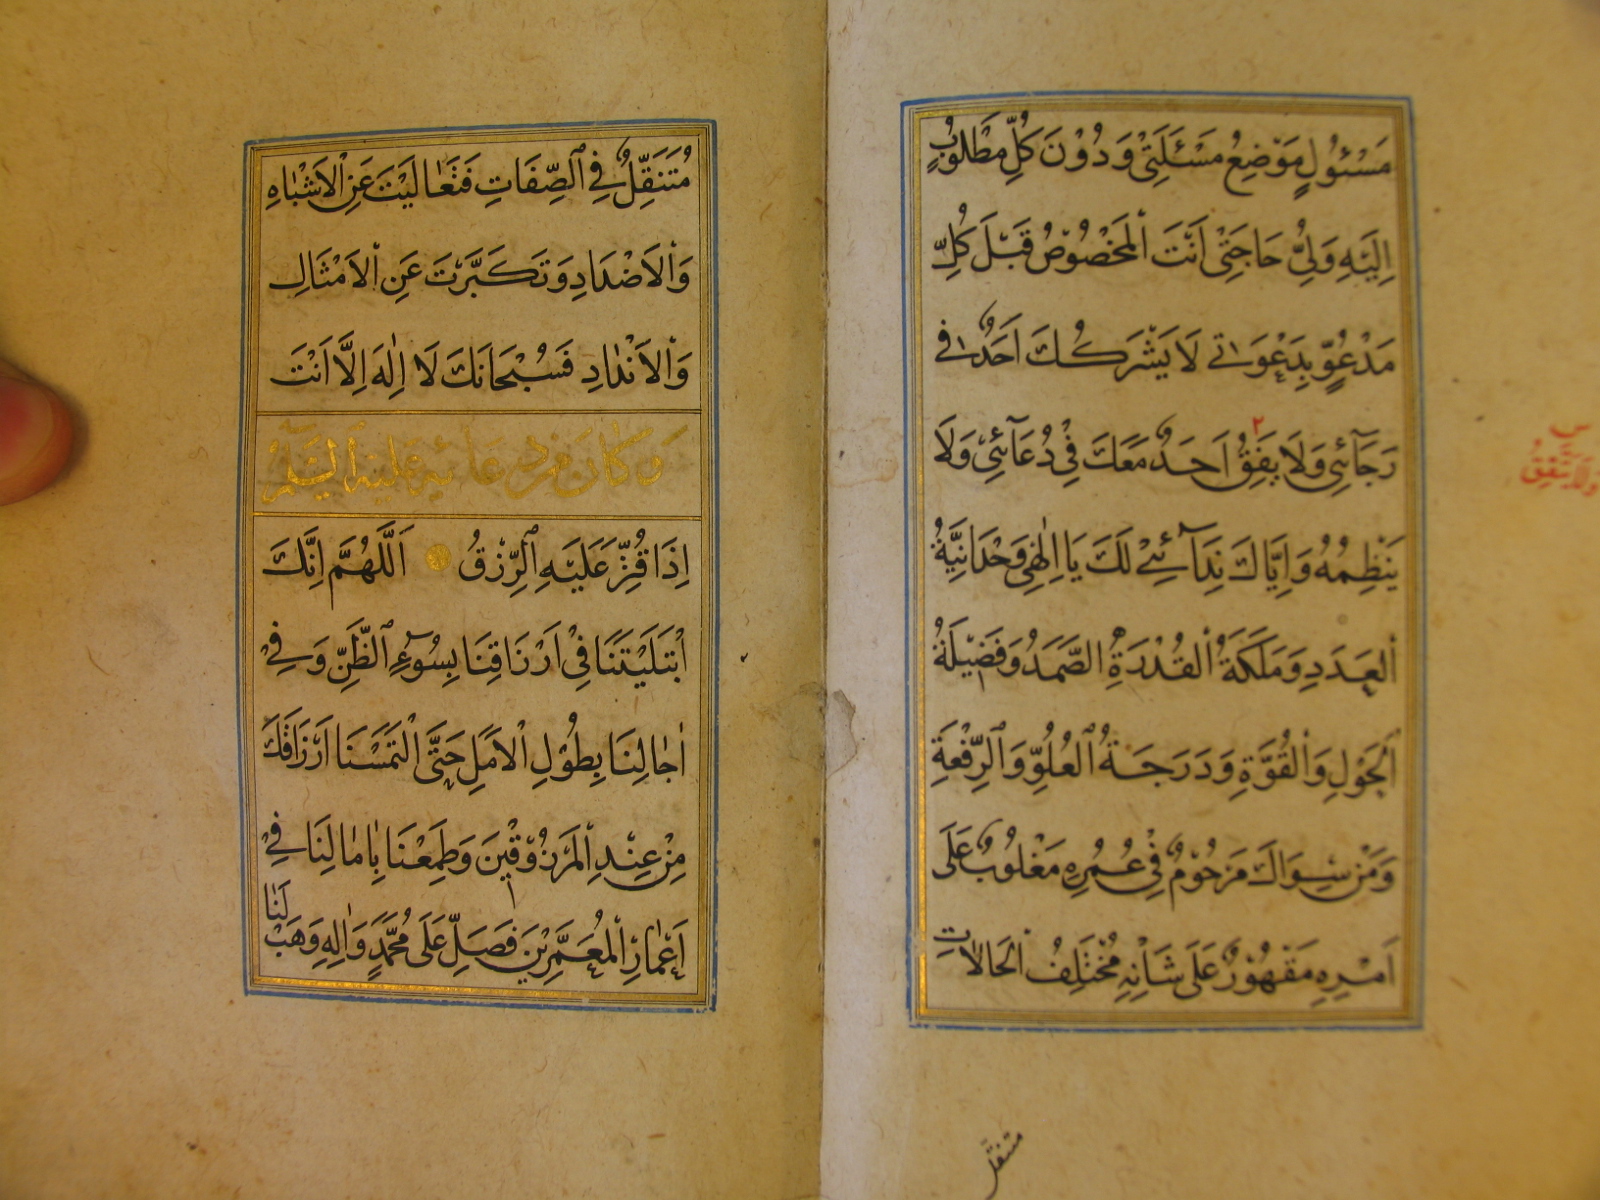 مَسْئُولٍ مَوْضِعُ مَسْئَلَتِيْ وَدُوْنَ كُلِّ مَطْلُوْبٍ
اِلَيْهِ وَلِيُّ حَاجَتِيْ اَنْتَ الْمَخْصُوْصُ قَبْلَ كُلِّ
مَدْعُوٍّ بِدَعْوَتِي لَا يَشْرَكُكَ اَحَدٌ فِي
رَجَآئِيْ وَلَا يَفِقُ اَحَدٌ مَعَكَ فِيْ دُعَآئِيْ وَلَا
يَنْظِمُهُ وَاِيَّاكَ نِدَآئِيْ لَكَ يَا اِلٰهِيْ وَحْدَانِيَّةُ
الْعَدَدِ وَمَلَكَةُ الْقُدْرَةِ الصَّمَدُ وَفَضِيْلَةُ
الْحَوْلِ وَالْقُوَّةِ وَدَرَجَةُ الْعُلُوِّ وَالرِّفْعَةِ
وَمَنْ سِوَاكَ مَرْحُوْمٌ فِيْ عُمُرِهِ مَغْلُوْبٌ عَلَى
اَمْرِهِ مَقْهُوْرٌ عَلَى شَاْنِهِ مُخْتَلِفُ الْحَالَاتِ
٢
وَلَا يَتَّفِقُ
متنقل
مُتَنَقِّلٌ فِي الصِّفَاتِ فَتَعَالَيْتَ عَنِ الْاَشْبَاهِ
وَالْاَضْدَادِ وَتَكَبَّرْتَ عَنِ الْاَمْثَالِ
وَالْاَنْدَادِ فَسُبْحَانَكَ لَا اِلٰهَ اِلَّا اَنْتَ
وَكَانَ مِنْ دُعَائِهِ عَلَيْهِ السَّلَامُ
اِذَا قُتِّرَ عَلَيْهِ الرِّزْقُ اَللّٰهُمَّ اِنَّكَ
ابْتَلَيْتَنَا فِيْ اَرْزَاقِنَا بِسُوْءِ الظَّنِّ وَفِيْ
اٰجَالِنَا بِطُوْلِ الْاَمَلِ حَتَّى الْتَمَسْنَا اَرْزَاقَكَ
مِنْ عِنْدِ الْمَرْزُوْقِيْنَ وَطَمِعْنَا بِاٰمَالِنَا فِيْ
اَعْمَارِ الْمُعَمَّرِيْنَ فَصَلِّ عَلَى مُحَمَّدٍ وَاٰلِهِ وَهَبْ لَنَا